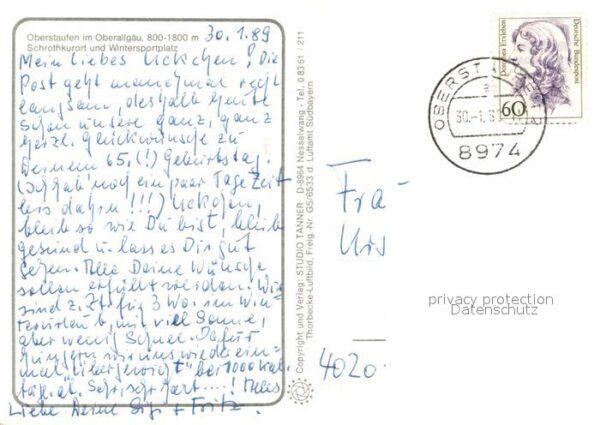 Oberstaufen im Oberallgäu, 800-1800 m
Schrothkurort und Wintersportplatz
30.1.89
Mein liebes Uckchen! Die
Post geht manchmal recht
langsam, deshalb heute
schon unsere ganz, ganz
herzl. Glückwünsche zu
Deinem 65.(!) Geburtstag.
(Ich hab noch ein paar Tage Zeit
bis dahin!!!) Uckchen,
bleib so wie Du bist, bleibe
gesund u. lass es Dir gut
gehen. Alle Deine Wünsche
sollen erfüllt werden. Wir
sind z. Zt. für 3 Wo. im Win-
terurlaub, mit viel Sonne,
aber wenig Schnee. Dafür
hungern wir uns wieder ein-
mal "übergewicht" bei 1000 Kal.
tägl. ab. Sehr, sehr hart....! Alles
Liebe Deine Sigi + Fritz.
Copyright und Verlag: STUDIO TANNER D-8964 Nesselwang - Tel. 0 83 61 / 211
Thorbecke-Luftbild, Freig.-Nr. G5/6533 d Luftamt Südbayern
Deutsche Bundespost
60
OBERSTAUFEN
a
30.-1.8
8974
Fra
Urs
4020
privacy protection
Datenschutz